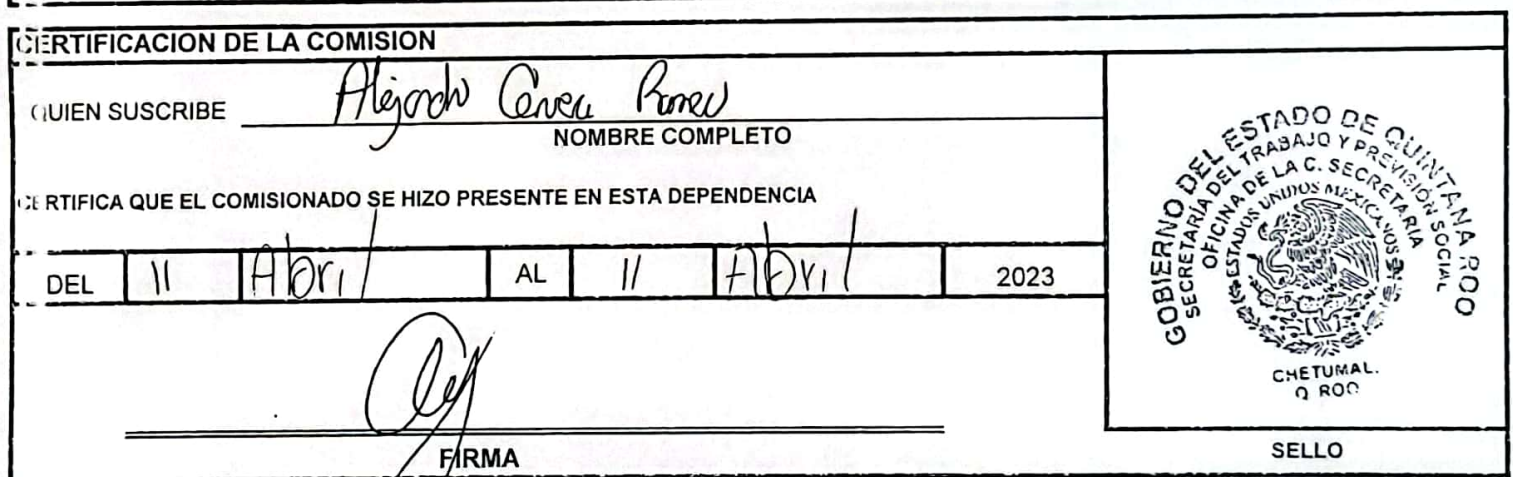 CERTIFICACION DE LA COMISION
QUIEN SUSCRIBE Alejandro
NOMBRE COMPLETO
CERTIFICA QUE EL COMISIONADO SE HIZO PRESENTE EN ESTA DEPENDENCIA
DEL 11 Abril AL 11 Abril 2023
FIRMA
GOBIERNO DEL ESTADO DE QUINTANA ROO
SECRETARÍA DEL TRABAJO Y PREVISIÓN SOCIAL
OFICINA DE LA C. SECRETARIA
ESTADOS UNIDOS MEXICANOS
CHETUMAL.
Q ROO
SELLO